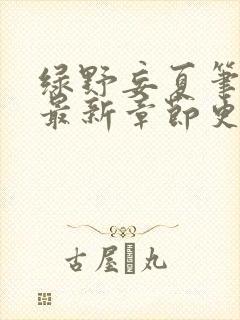 绿野妄夏笔
最新章节史
古屋 丸